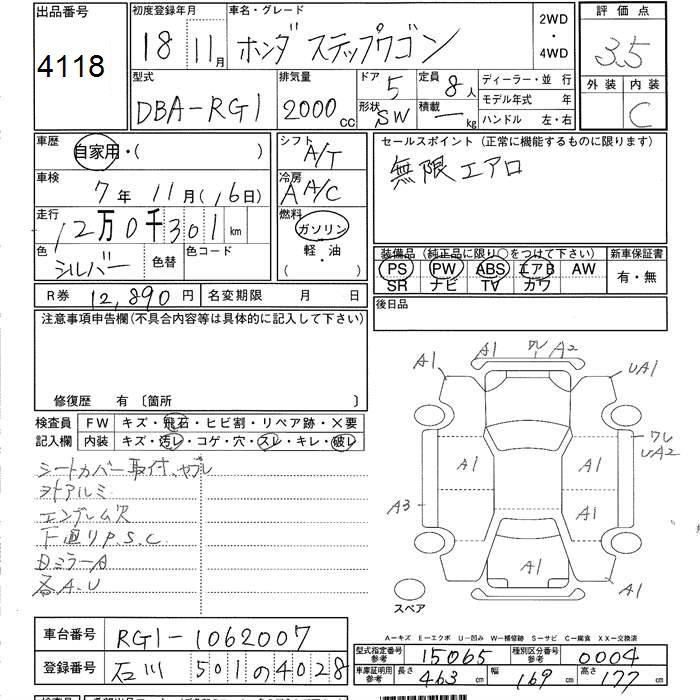 出品番号
4118
初度登録年月 車名・グレード
18 11月 ホンダ ステップワゴン
2WD
・
4WD
評価点
3.5
外装 内装
C
型式 排気量 ドア 定員
DBA-RG1 2000cc 5 8人
形状 積載
SW ー kg
ディーラー・並 行
モデル年式 年
ハンドル 左・右
車歴
自家用・( )
車検
7年 11月(16日)
走行
12万0千301km
色 色替 色コード
シルバー
シフト
A/T
冷房
AA/C
燃料
ガソリン
軽・油
セールスポイント (正常に機能するものに限ります)
無限エアロ
装備品 (純正品に限り○をつけて下さい) 新車保証書
PS PW ABS エアB AW
SR ナビ TV カワ
有・無
後日品
R券 12,890円 名変期限 月 日
注意事項申告欄(不具合内容等は具体的に記入して下さい)
修復歴 有 〔箇所 〕
検査員 FW キズ・飛石・ヒビ割・リペア跡・×要
記入欄 内装 キズ・汚レ・コゲ・穴・スレ・キレ・破レ
シートカバー取付、ヤブレ
外アルミ
エンブレム欠
下廻りP.S.C
Dミラー A
各A.U
A1 A1 ワレ A2 UA1
A1 A1 ワレ UA2
A3 A1
A1 A1 A1
スペア
A－キズ E－エクボ U－凹み W－補修跡 S－サビ C－腐食 XX－交換済
車台番号 RG1-1062007
登録番号 石川 501の4028
型式指定番号参考 15065 種別区分番号参考 0004
車庫証明用参考 長さ 463cm 幅 169cm 高さ 177cm